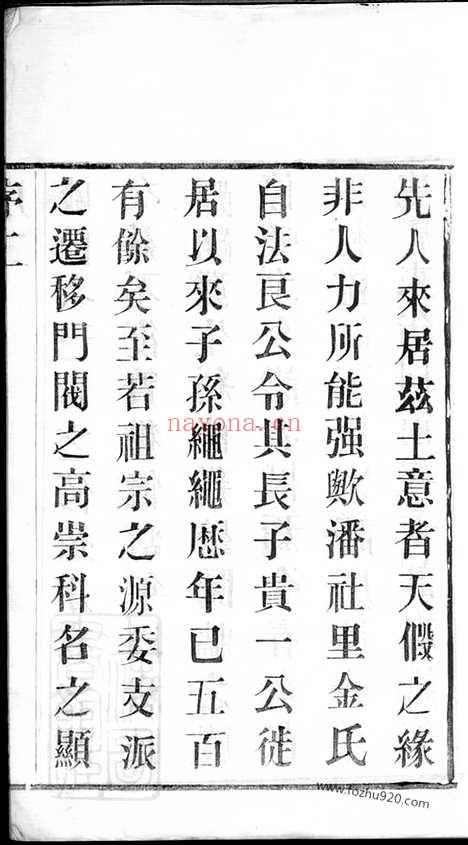 先人來居玆土意者天假之緣
非人力所能强歟潘社里金氏
自法良公令其長子貴一公徙
居以來子孫繩繩厯年已五百
有餘矣至若祖宗之源委支派
之遷移門閥之高崇科名之顯
序二
nayona.cn
www.fozhu920.com